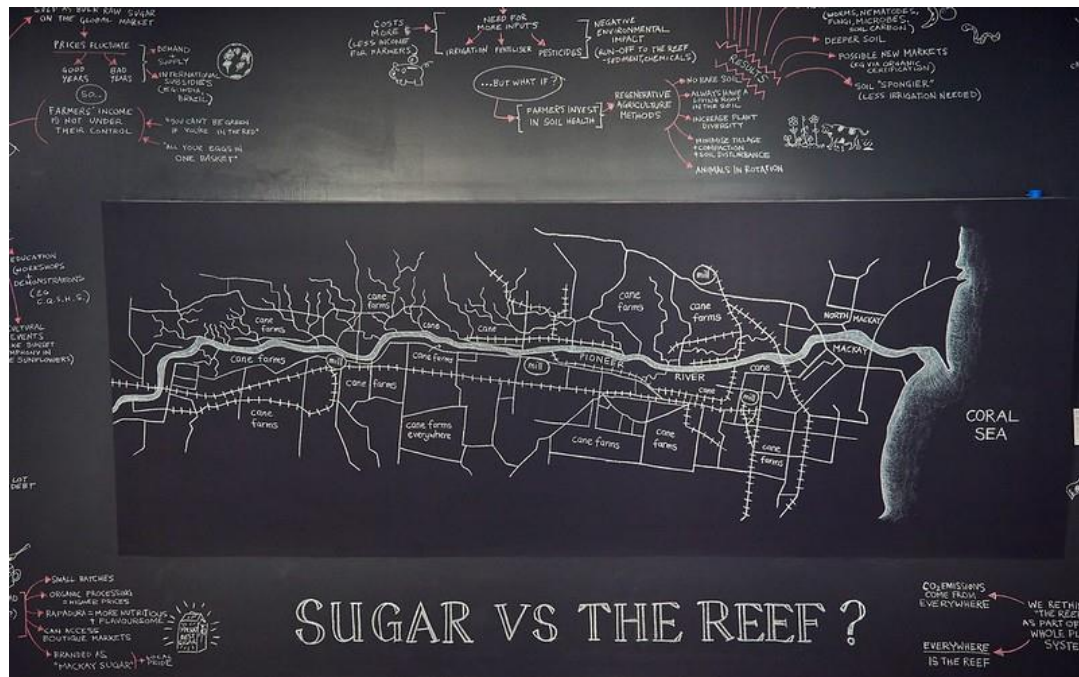 SOLD AS BULK RAW SUGAR
ON THE GLOBAL MARKET
PRICES FLUCTUATE
DEMAND
+
SUPPLY
GOOD
YEARS
BAD
YEARS
INTERNATIONAL
SUBSIDIES
(EG. INDIA,
BRAZIL)
SO...
FARMERS' INCOME
IS NOT UNDER
THEIR CONTROL
"YOU CAN'T BE GREEN
IF YOU'RE IN THE RED"
"ALL YOUR EGGS IN
ONE BASKET"
COSTS
MORE $
(LESS INCOME
FOR FARMERS)
NEED FOR
MORE INPUTS
IRRIGATION
FERTILISER
PESTICIDES
NEGATIVE
ENVIRONMENTAL
IMPACT
(RUN-OFF TO THE REEF
-SEDIMENT, CHEMICALS)
...BUT WHAT IF?
FARMERS INVEST
IN SOIL HEALTH
REGENERATIVE
AGRICULTURE
METHODS
NO BARE SOIL
ALWAYS HAVE A
LIVING ROOT
IN THE SOIL
INCREASE PLANT
DIVERSITY
MINIMISE TILLAGE
+ COMPACTION
+ SOIL DISTURBANCE
ANIMALS IN ROTATION
RESULTS
(WORMS, NEMATODES,
FUNGI, MICROBES,
SOIL CARBON)
DEEPER SOIL
POSSIBLE NEW MARKETS
(EG VIA ORGANIC
CERTIFICATION)
SOIL "SPONGIER"
(LESS IRRIGATION NEEDED)
EDUCATION
(WORKSHOPS
+
DEMONSTRATIONS
(EG
C.Q.S.H.S.)
EVENTS
SUNSET
IN
SUNFLOWERS)
LOT
DEBT
mill
cane
farms
cane
farms
cane
farms
cane
farms
cane
cane
NORTH MACKAY
MACKAY
PIONEER
RIVER
cane farms
mill
cane farms
mill
cane
cane farms
cane
mill
cane
farms
cane farms
everywhere
cane farms
cane
farms
cane
farms
CORAL
SEA
SMALL BATCHES
ORGANIC PROCESSING
= HIGHER PRICES
RAPADURA = MORE NUTRITIOUS
+ FLAVOURSOME
CAN ACCESS
BOUTIQUE MARKETS
BRANDED AS
"MACKAY SUGAR"
LOCAL
PRIDE
SUGAR VS THE REEF?
CO2 EMISSIONS
COME FROM
EVERYWHERE
EVERYWHERE
IS THE REEF
WE RETHI
"THE REE
AS PART OF
WHOLE PL
SYSTE